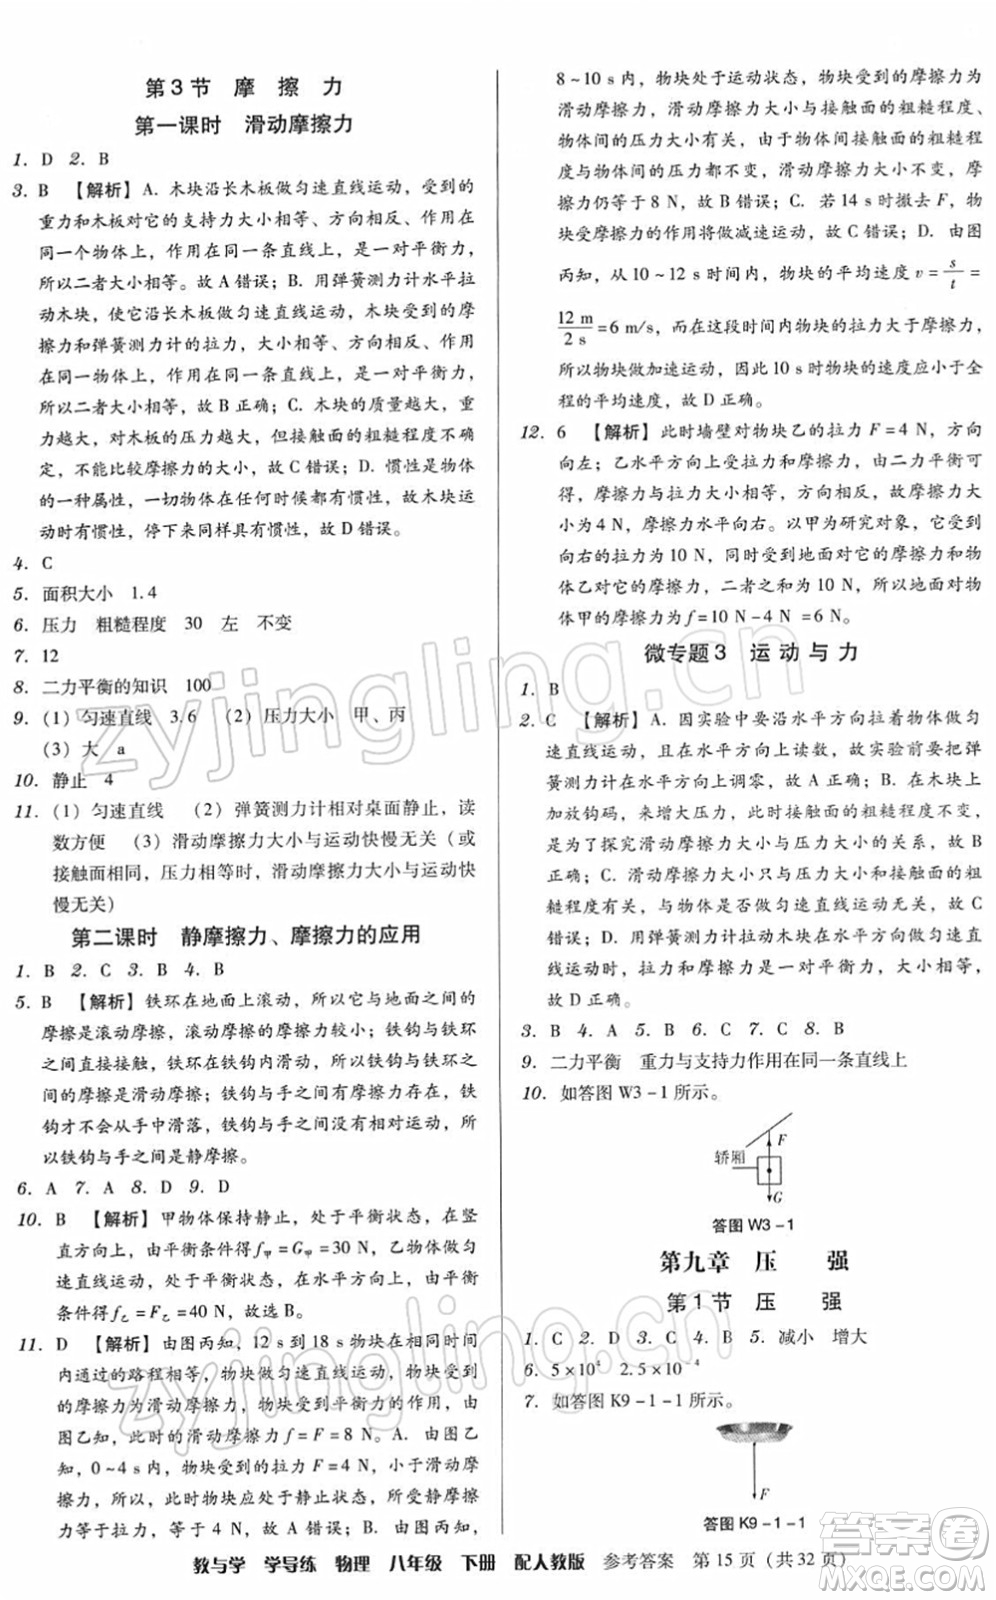 第3节 摩 擦 力
第一课时 滑动摩擦力
1. D 2. B
3. B 【解析】A. 木块沿长木板做匀速直线运动，受到的
重力和木板对它的支持力大小相等、方向相反、作用在
同一个物体上，作用在同一条直线上，是一对平衡力，
所以二者大小相等。故A错误；B. 用弹簧测力计水平拉
动木块，使它沿长木板做匀速直线运动，木块受到的摩
擦力和弹簧测力计的拉力，大小相等、方向相反、作用
在同一物体上，作用在同一条直线上，是一对平衡力，
所以二者大小相等，故B正确；C. 木块的质量越大，重
力越大，对木板的压力越大，但接触面的粗糙程度不确
定，不能比较摩擦力的大小，故C错误；D. 惯性是物体
的一种属性，一切物体在任何时候都有惯性，故木块运
动时有惯性，停下来同样具有惯性，故D错误。
4. C
5. 面积大小 1.4
6. 压力 粗糙程度 30 左 不变
7. 12
8. 二力平衡的知识 100
9. (1) 匀速直线 3.6 (2) 压力大小 甲、丙
(3) 大 a
10. 静止 4
11. (1) 匀速直线 (2) 弹簧测力计相对桌面静止，读
数方便 (3) 滑动摩擦力大小与运动快慢无关（或
接触面相同，压力相等时，滑动摩擦力大小与运动快
慢无关）
第二课时 静摩擦力、摩擦力的应用
1. B 2. C 3. B 4. B
5. B 【解析】铁环在地面上滚动，所以它与地面之间的
摩擦是滚动摩擦，滚动摩擦的摩擦力较小；铁钩与铁环
之间直接接触，铁环在铁钩内滑动，所以铁钩与铁环之
间的摩擦是滑动摩擦；铁钩与手之间的摩擦力存在，铁
钩才不会从手中滑落，铁钩与手之间没有相对运动，所
以铁钩与手之间是静摩擦。
6. A 7. A 8. D 9. D
10. B 【解析】甲物体保持静止，处于平衡状态，在竖
直方向上，由平衡条件得f甲=G甲=30 N，乙物体做匀
速直线运动，处于平衡状态，在水平方向上，由平衡
条件得f乙=F乙=40 N，故选B。
11. D 【解析】由图丙知，12 s到18 s物块在相同时间
内通过的路程相等，物块做匀速直线运动，物块受到
的拉力与受到的滑动摩擦力是一对平衡力，大小相等，
由图乙知，此时的滑动摩擦力f=F=8 N。A. 由图乙
知，0~4 s内，物块受到的拉力F=4 N，小于滑动摩
擦力，所以，此时物块应处于静止状态，受到的摩擦
力等于拉力，等于4 N，故A错误；B. 由图乙知，
8~10 s内，物块处于运动状态，物块受到的摩擦力是
滑动摩擦力，滑动摩擦力大小与接触面的粗糙程度、
物体间的压力大小有关，由于物体间接触面的粗糙程
度不变，物体间的压力大小不变，滑动摩擦力大小不变，摩
擦力仍等于8 N，故B错误；C. 若14 s时撤去F，物
块受摩擦力的作用将做减速运动，故C错误；D. 由图
丙知，从10~12 s时间内，物块的平均速度v=s/t=
12 m/2 s=6 m/s，而在这段时间内物块的拉力大于摩擦力，
所以物块做加速运动，因此10 s时物块的速度应小于全
程的平均速度，故D正确。
12. 6 【解析】此时墙壁对物块乙的拉力F=4 N，方向
向左；乙水平方向上受拉力和摩擦力，由二力平衡可
得，摩擦力与拉力大小相等，方向相反，故摩擦力大
小为4 N，摩擦力水平向右。以甲为研究对象，它受到
向右的拉力为10 N，同时受到地面对它的摩擦力和物
体乙对它的摩擦力，二者之和为10 N，故地面对物
体甲的摩擦力为f=10 N-4 N=6 N。
微专题3 运动与力
1. B
2. C 【解析】A. 因实验中要沿水平方向拉着物体做匀
速直线运动，且在水平方向上读数，故实验前要把弹
簧测力计在水平方向上调零，故A正确；B. 在木块上
加放钩码，来增大压力，没有改变接触面的粗糙程度，
是为了探究滑动摩擦力大小与压力大小的关系，故B
正确；C. 滑动摩擦力大小只与压力大小和接触面的粗
糙程度有关，与物体是否做匀速直线运动无关，故C
错误；D. 用弹簧测力计在水平方向匀速拉动木块
时，拉力和摩擦力是一对平衡力，大小相等，
故D正确。
3. B 4. A 5. B 6. C 7. C 8. B
9. 二力平衡 重力与支持力作用在同一条直线上
10. 如答图W3-1所示。
F
轿厢
G
答图W3-1
第九章 压 强
第1节 压 强
1. C 2. D 3. C 4. B 5. 减小 增大
6. 5×10⁴ 2.5×10⁻⁴
7. 如答图K9-1-1所示。
F
答图K9-1-1
教与学 学导练 物理 八年级 下册 配人教版 参考答案 第15页（共32页）
zyjingling.com
zyjingling.com
作业精灵
答案圈
MXQE.COM